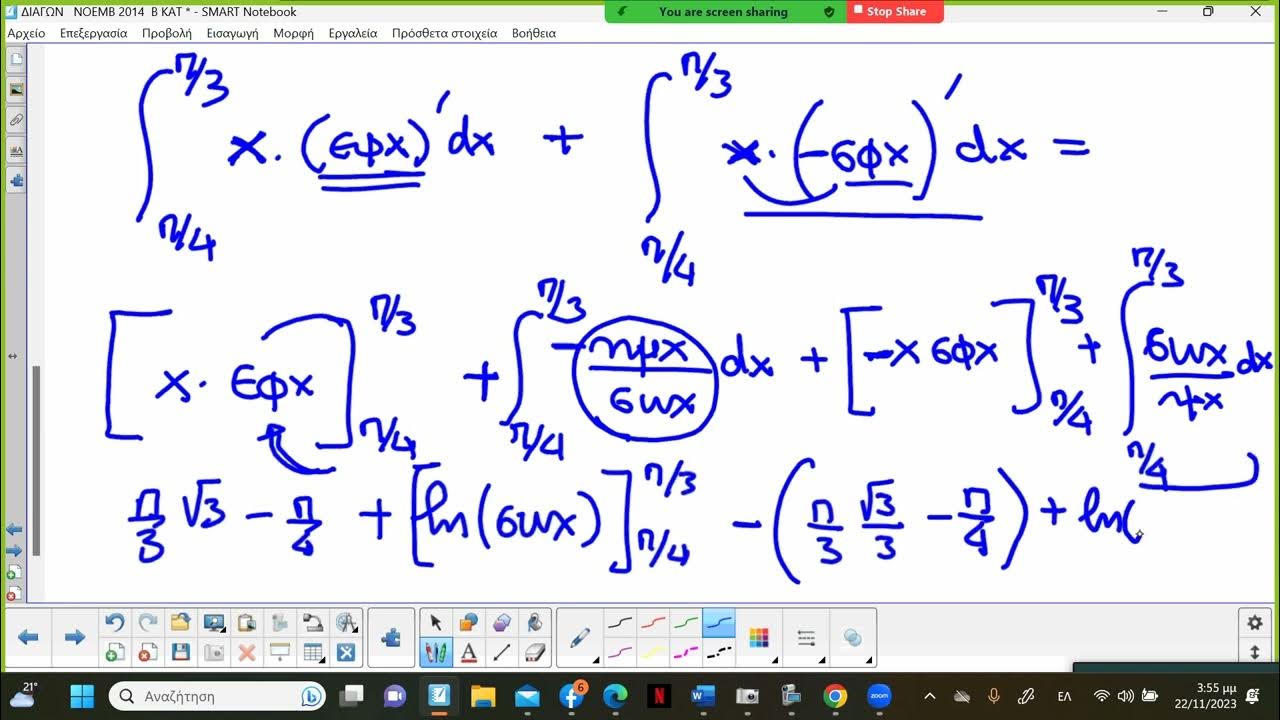 ΔΙΑΓΩΝ ΝΟΕΜΒ 2014 Β ΚΑΤ * - SMART Notebook
You are screen sharing
Stop Share
Αρχείο Επεξεργασία Προβολή Εισαγωγή Μορφή Εργαλεία Πρόσθετα στοιχεία Βοήθεια
∫_{π/4}^{π/3} x·(εφx)′ dx + ∫_{π/4}^{π/3} x·(-σφx)′ dx =
[x·εφx]_{π/4}^{π/3} + ∫_{π/4}^{π/3} -ημx/συνx dx + [-x σφx]_{π/4}^{π/3} + ∫_{π/4}^{π/3} συνx/ημx dx
π/3 √3 - π/4 + [ln(συνx)]_{π/4}^{π/3} - (π/3 √3/3 - π/4) + ln(
21°
Αναζήτηση
6
zoom
ΕΛ
3:55 μμ
22/11/2023